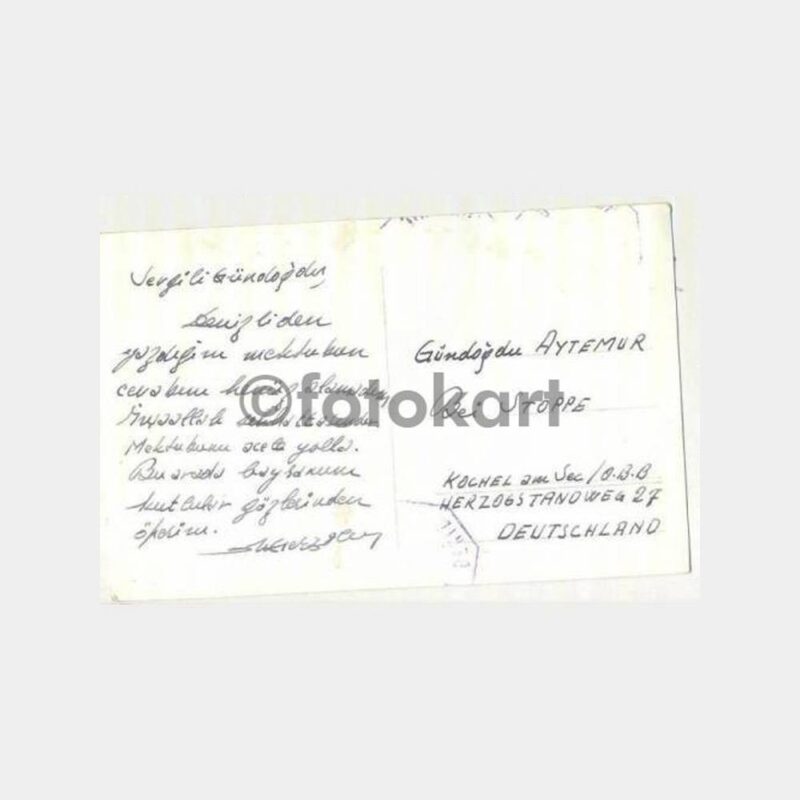 Sevgili Gündoğdu,
Denizliden
yazdığım mektubun
cevabını henüz alamadım
İnşaallah
Mektubunu acele yolla.
Bu arada bayramını
kutlular gözlerinden
öperim.
Gündoğdu AYTEMUR
Bei STOPPE
KOCHEL am See/O.B.B
HERZOGSTANDWEG 27
DEUTSCHLAND
©fotokart